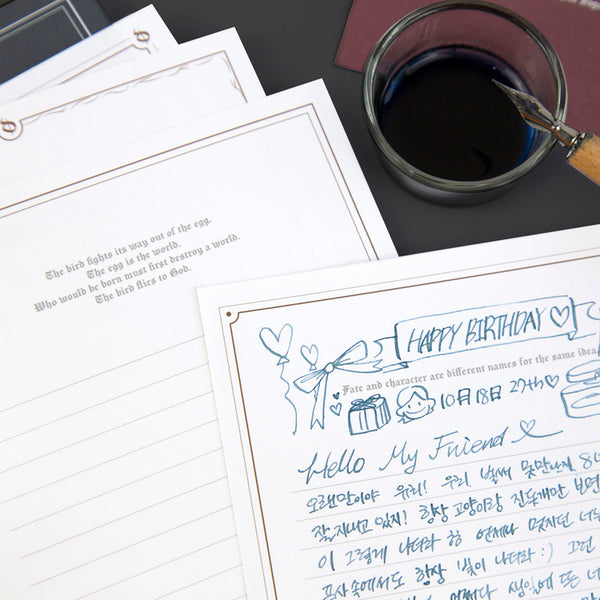 The bird fights its way out of the egg.
The egg is the world.
Who would be born must first destroy a world.
The bird flies to God.
HAPPY BIRTHDAY♡
Fate and character are different names for the same idea
10月18日 27th♡
Hello My Friend
오랜만이야 유리! 우리 벌써 못만난지 8
잘지내고 있지! 항상 고양이랑
이 그렇게 나더라 ㅎㅎ 언제나 멋지던 너는
항상 빛이 나더라 :) 그런
생일에 또 너